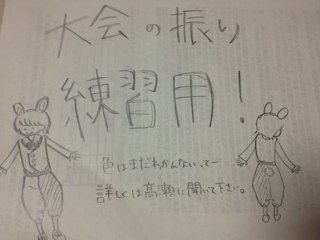 大会の振り
練習用!
色はまだわかんないってー
詳しくは高瀬に聞いて下さい。